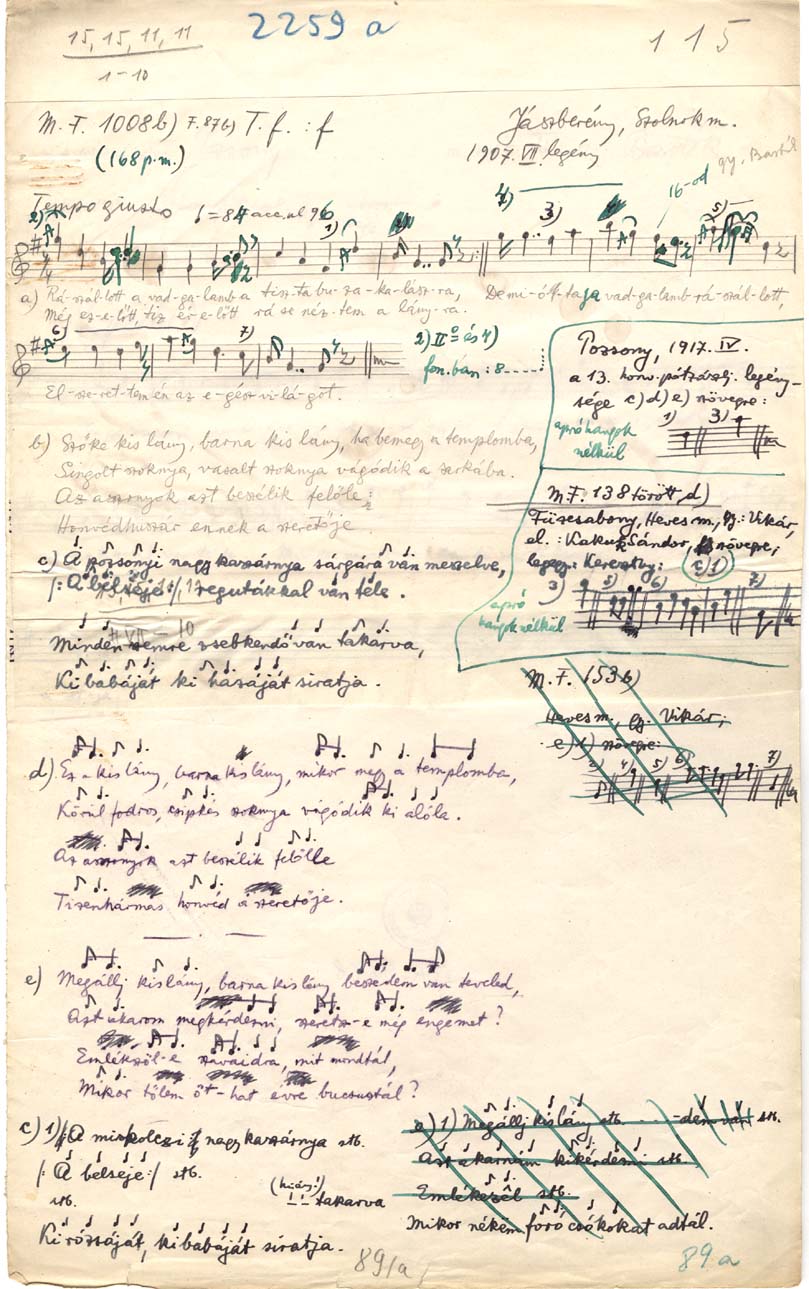 15, 15, 11, 11
1-10
2259 a
115
M. F. 1008b) F. 87b) T. f. : f
(168 p.m.)
Jászberény, Szolnok m.
1907. VII. legény
gy. Bartók
Tempo giusto ♩ = 84 acc. al 96
16-od
a) Rá-szál-lott a vad-ga-lamb a tisz-ta bu-za-ka-lász-ra,
Még ez-e-lőtt tiz év-e-lőtt rá se néz-tem a lány-ra.
De mi-ó-ta a vad-ga-lamb rá-szál-lott,
El-sze-ret-tem én az e-gész vi-lá-got.
2) II° és 4)
fon.ban : 8
Pozsony, 1917. IV.
a 13. honv. pótzászlj. legény-
sége c) d) e) szövegre:
1) 3)
apró hangok
nélkül
b) Szőke kis lány, barna kis lány, ha bemegy a templomba,
Singolt szoknya, vasalt szoknya vágódik a sarkába.
Az asszonyok azt beszélik felőle:
Honvédhuszár ennek a szeretője
M.F. 138 törött, d)
Füzesabony, Heves m., gy.: Vikár,
el.: Kakuk Sándor, szövegre,
Keresztny:
c) 1)
3) 5) 6) 7)
apró
hangok nélkül
c) A pozsonyi nagy kaszárnya sárgára van meszelve,
/: A belseje :/, regutákkal van tele.
Minden szemre zsebkendő van takarva,
Ki babáját ki házáját siratja.
M. F. 153b)
Heves m., gy. Vikár,
e) 1) szövegre:
4) 5) 6) 7)
d) Ez a kislány, barna kislány, mikor megy a templomba,
Körül fodros, csipkés szoknya vágódik ki alóla.
Az asszonyok azt beszélik felőlle
Tizenhármas honvéd a szeretője.
e) Megállj kislány, barna kislány beszedem van teveled,
Azt akarom megkérdezni, szeretsz-e még engemet?
Emlékszöl-e szavaidra, mit mondtál,
Mikor tőlem öt-hat évre bucsuztál?
c) 1) /: A miskolczi :/ nagy kaszárnya stb.
/: A belseje :/ stb.
stb.
(hiány!)
takarva
Ki rózsáját, ki babáját siratja.
e) 1) Megállj kislány stb. -dem van stb.
Azt akarnám kikérdezni stb.
Emlékezel stb.
Mikor nékem foró csókokat adtál.
89/a
89a